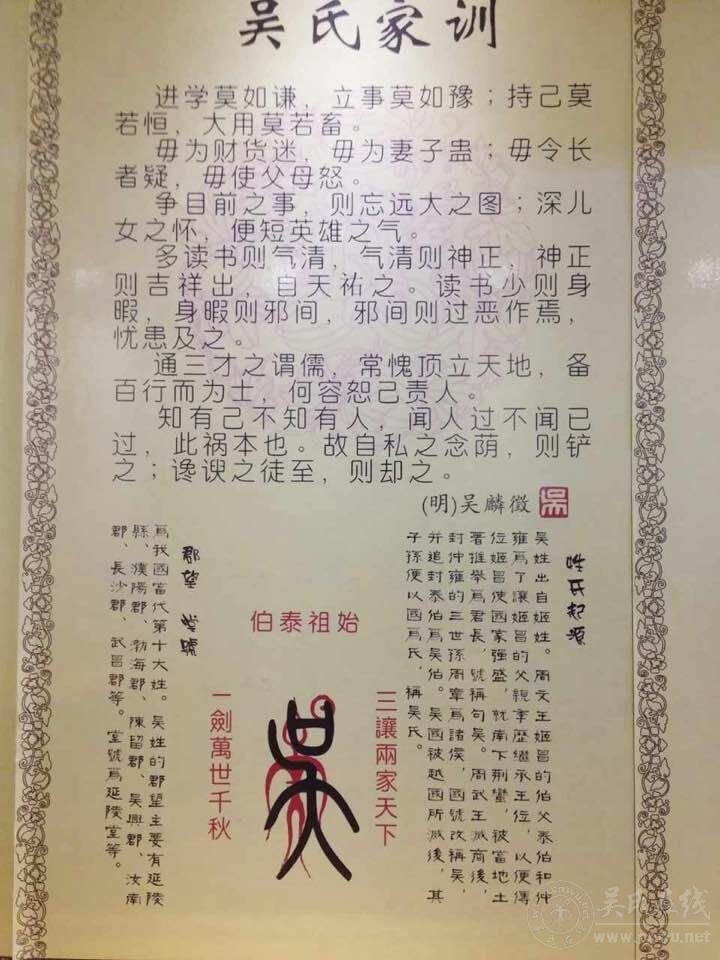 吴氏家训
进学莫如谦，立事莫如豫；持己莫
若恒，大用莫若畜。
毋为财货迷，毋为妻子蛊；毋令长
者疑，毋使父母怒。
争目前之事，则忘远大之图；深儿
女之怀，便短英雄之气。
多读书则气清，气清则神正，神正
则吉祥出，自天祐之。读书少则身
暇，身暇则邪间，邪间则过恶作焉，
忧患及之。
通三才之谓儒，常愧顶立天地，备
百行而为士，何容恕己责人。
知有己不知有人，闻人过不闻已
过，此祸本也。故自私之念荫，则铲
之；谗谀之徒至，则却之。
(明)吴麟徵
吳
姓氏起源
吴姓出自姬姓。周文王姬昌的伯父泰伯和仲
雍爲了讓姬昌的父親季歷繼承王位，以便傳
位姬昌使國家强盛，就南下荆蠻，被當地土
著推举爲君長，號稱句吴。周武王滅商後，
封仲雍的三世孫周章爲諸侯，國號改稱吴，
并追封泰伯爲吴伯。吴國被越國所滅後，其
子孫便以國爲氏，稱吴氏。
伯泰祖始
三讓兩家天下
吴
一劍萬世千秋
郡望 堂號
爲我國當代第十大姓。吴姓的郡望主要有延陵
縣、濮陽郡、渤海郡、陳留郡、吴興郡、汝南
郡、長沙郡、武昌郡等。堂號爲延陵堂等。
吴氏在线